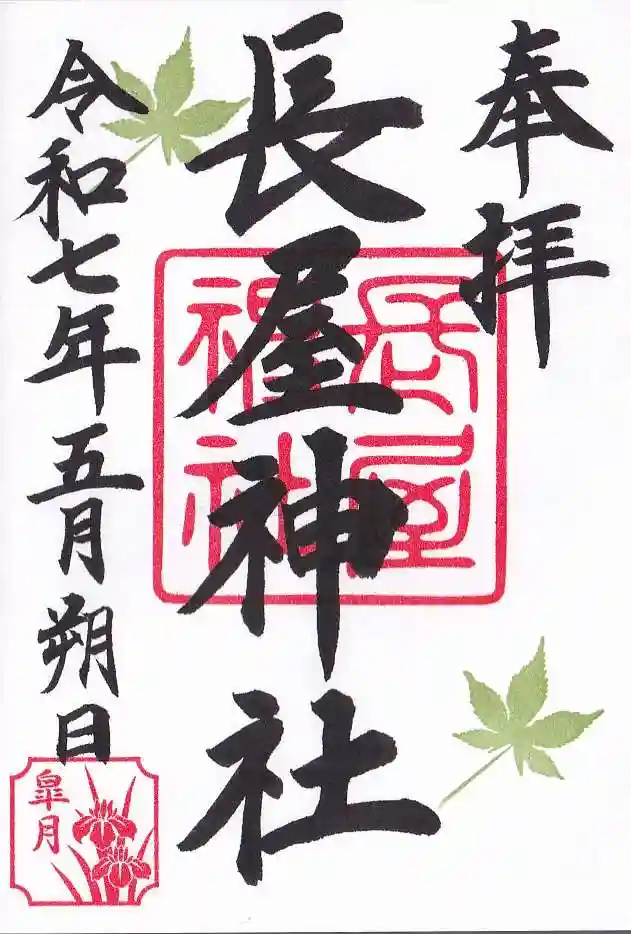 奉拝
長屋神社
長屋神社
令和七年五月朔日
皐月